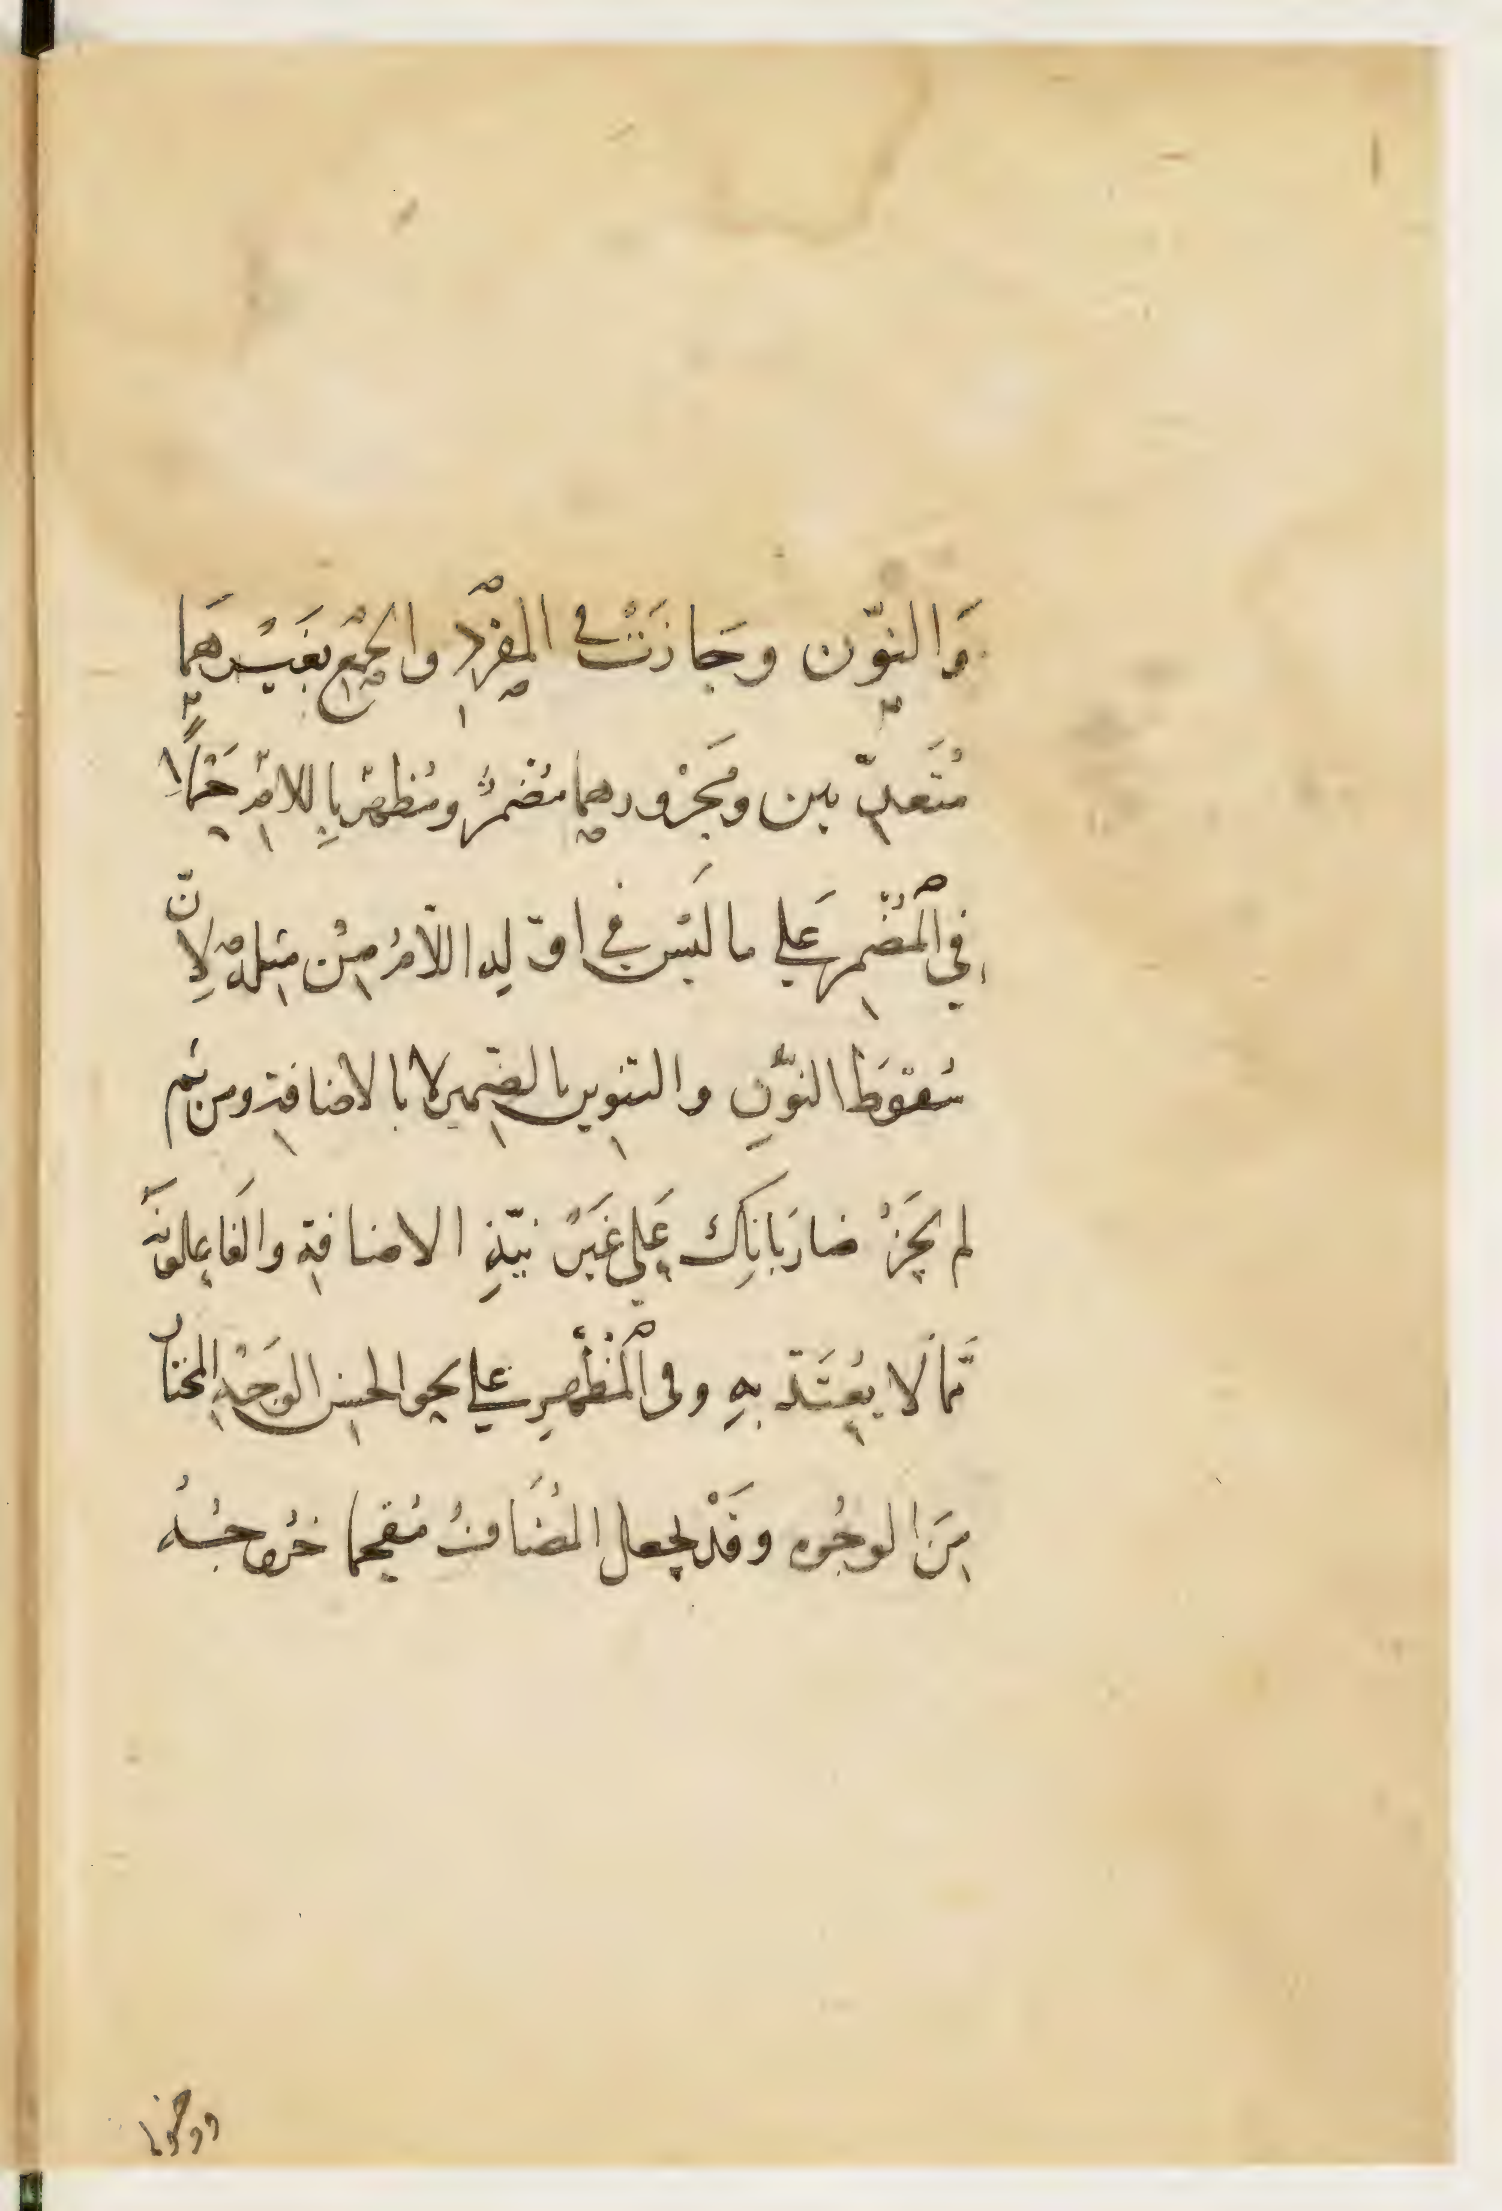 وَالنّون وجَازَتْ في المُفْرَدِ والجَمْعِ بغَيْرِهما
مُتَعدّيين ومَجْرورهما مُضْمَرٌ ومُظهَرٌ باللامِ حَمْلًا
في المُضْمَرِ عَلى ما لَيْسَ في اوّله اللّامُ مِنْ مِثلهِ لِانّ
سُقوْطَ النوّنِ والتنوين بالضّمير لا بالاضافةِ ومن ثم
لم يَجُزْ ضارَبانِكَ عَلى غَيْرِ نيّةِ الاضافةِ والفَاعِلونَهُ
ممّا لَا يُعتَدّ بهِ وفى المُظْهَرِ على نحو الحسن الوَجْهِ المختار
مِنَ الوجُوه وقَدْ يجعل المُضَافُ مُقحما خرُوجُهُ